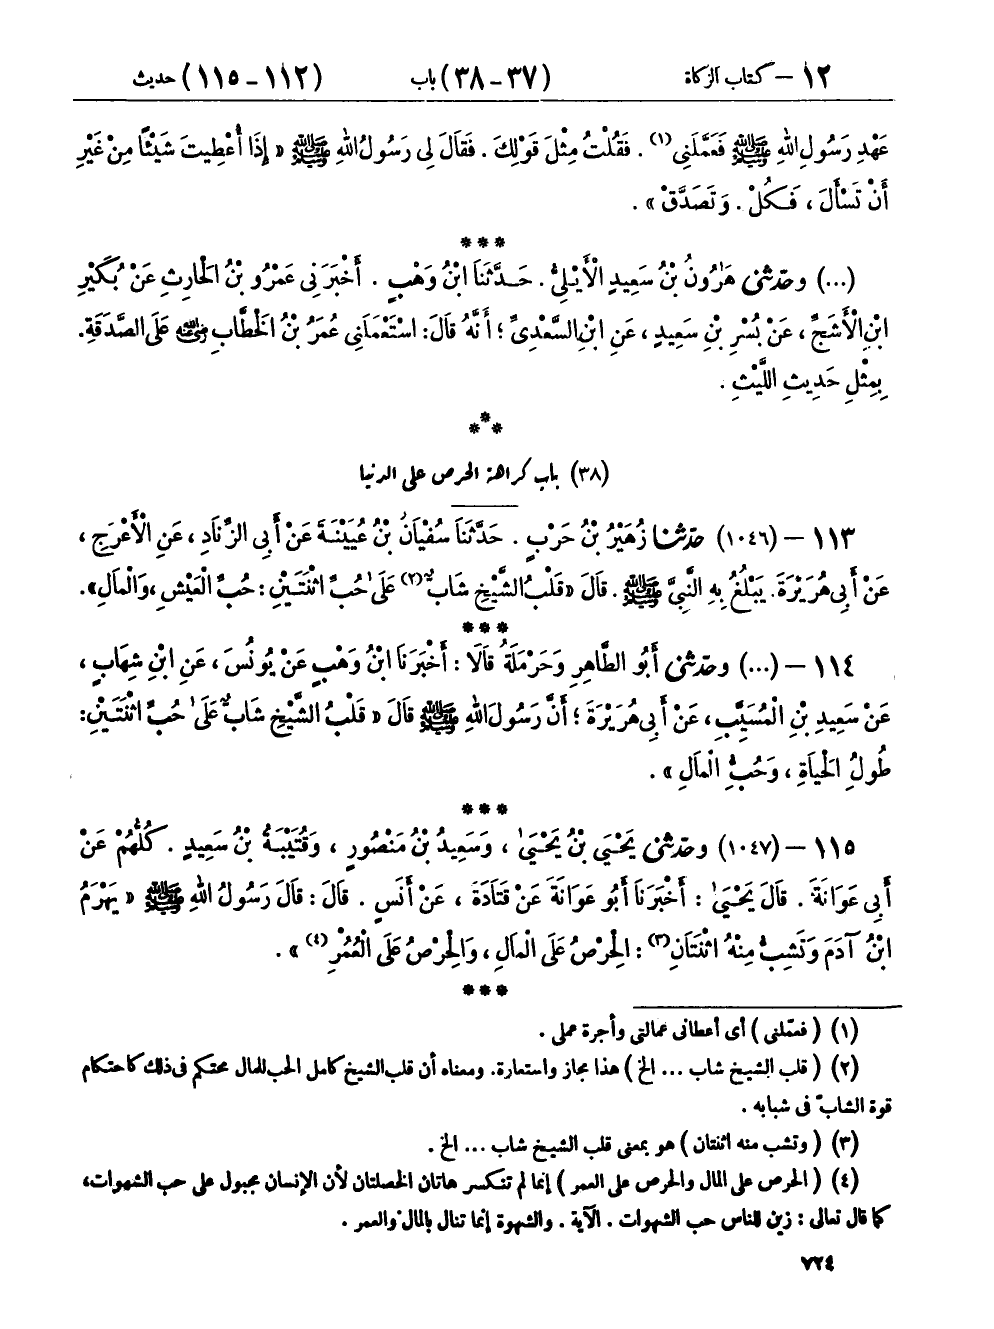 ١٢ – كتاب الزكاة (٣٧ – ٣٨) باب (١١٢ – ١١٥) حديث
عَهْدِ رَسُولِ اللهِ ﷺ فَعَمَّلَنِى (١) . فَقُلْتُ مِثْلَ قَوْلِكَ . فَقَالَ لِى رَسُولُ اللهِ ﷺ « إِذَا أُعْطِيتَ شَيْئًا مِنْ غَيْرِ
أَنْ تَسْأَلَ ، فَكُلْ . وَتَصَدَّقْ » .
***
(...) وحَدَّثَنِى هَرُونُ بْنُ سَعِيدٍ الْأَيْلِىُّ . حَدَّثَنَا ابْنُ وَهْبٍ . أَخْبَرَنِى عَمْرُو بْنُ الْحَارِثِ عَنْ بُكَيْرِ
ابْنِ الْأَشَجِّ ، عَنْ بُسْرِ بْنِ سَعِيدٍ ، عَنِ ابْنِ السَّعْدِىِّ ؛ أَنَّهُ قَالَ: اسْتَعْمَلَنِى عُمَرُ بْنُ الْخَطَّابِ رضي الله عنه عَلَى الصَّدَقَةِ.
بِمِثْلِ حَدِيثِ اللَّيْثِ .
***
(٣٨) باب كراهة الحرص على الدنيا
١١٣ – (١٠٤٦) حَدَّثَنَا زُهَيْرُ بْنُ حَرْبٍ . حَدَّثَنَا سُفْيَانُ بْنُ عُيَيْنَةَ عَنْ أَبِى الزِّنَادِ ، عَنِ الْأَعْرَجِ ،
عَنْ أَبِى هُرَيْرَةَ. يَبْلُغُ بِهِ النَّبِىَّ ﷺ . قَالَ « قَلْبُ الشَّيْخِ شَابٌّ (٢) عَلَى حُبِّ اثْنَتَيْنِ : حُبِّ الْعَيْشِ ، وَالْمَالِ».
***
١١٤ – (...) وحَدَّثَنِى أَبُو الطَّاهِرِ وَحَرْمَلَةُ قَالَا : أَخْبَرَنَا ابْنُ وَهْبٍ عَنْ يُونُسَ ، عَنِ ابْنِ شِهَابٍ ،
عَنْ سَعِيدِ بْنِ الْمُسَيَّبِ، عَنْ أَبِى هُرَيْرَةَ ؛ أَنَّ رَسُولَ اللهِ ﷺ قَالَ « قَلْبُ الشَّيْخِ شَابٌّ عَلَى حُبِّ اثْنَتَيْنِ:
طُولُ الْحَيَاةِ ، وَحُبُّ الْمَالِ » .
***
١١٥ – (١٠٤٧) وحَدَّثَنِى يَحْيَى بْنُ يَحْيَى ، وَسَعِيدُ بْنُ مَنْصُورٍ ، وَقُتَيْبَةُ بْنُ سَعِيدٍ . كُلُّهُمْ عَنْ
أَبِى عَوَانَةَ . قَالَ يَحْيَى : أَخْبَرَنَا أَبُو عَوَانَةَ عَنْ قَتَادَةَ ، عَنْ أَنَسٍ . قَالَ : قَالَ رَسُولُ اللهِ ﷺ « يَهْرَمُ
ابْنُ آدَمَ وَتَشِبُّ مِنْهُ اثْنَتَانِ (٣) : الْحِرْصُ عَلَى الْمَالِ ، وَالْحِرْصُ عَلَى الْعُمُرِ (٤) » .
***
(١) ( فعمّلنى ) أى أعطانى عمالتى وأجرة عملى .
(٢) ( قلب الشيخ شاب ... الخ ) هذا مجاز واستعارة. ومعناه أن قلب الشيخ كامل الحب للمال محتكم فى ذلك كاحتكام
قوة الشابّ فى شبابه .
(٣) ( وتشب منه اثنتان ) هو بمعنى قلب الشيخ شاب ... الخ .
(٤) ( الحرص على المال والحرص على العمر ) إنما لم تنكسر هاتان الخصلتان لأن الإنسان مجبول على حب الشهوات،
كما قال تعالى : زين للناس حب الشهوات . الآية . والشهوة إنما تنال بالمال والعمر .
٧٢٤